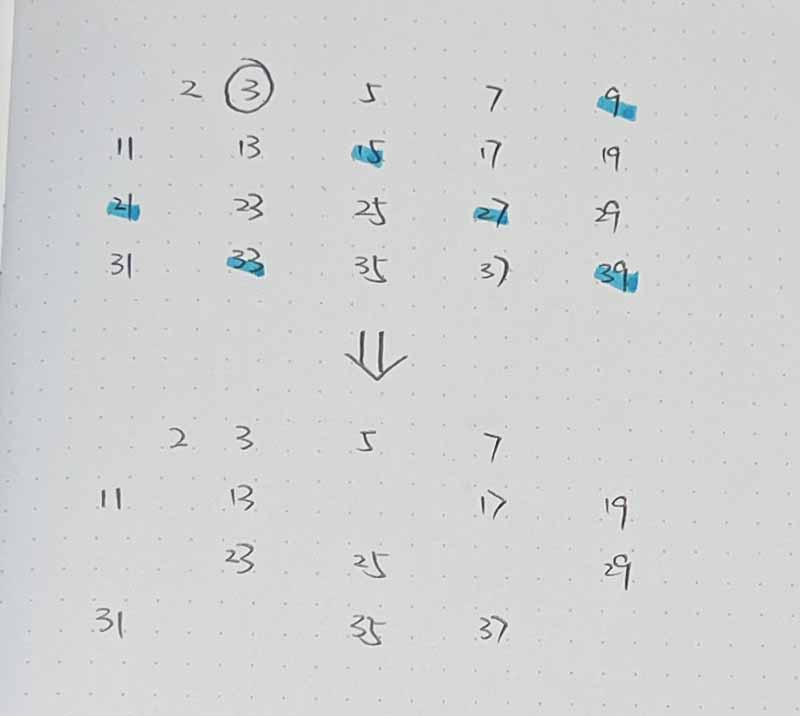 2 3 5 7 9
11 13 15 17 19
21 23 25 27 29
31 33 35 37 39
2 3 5 7
11 13 17 19
23 25 29
31 35 37